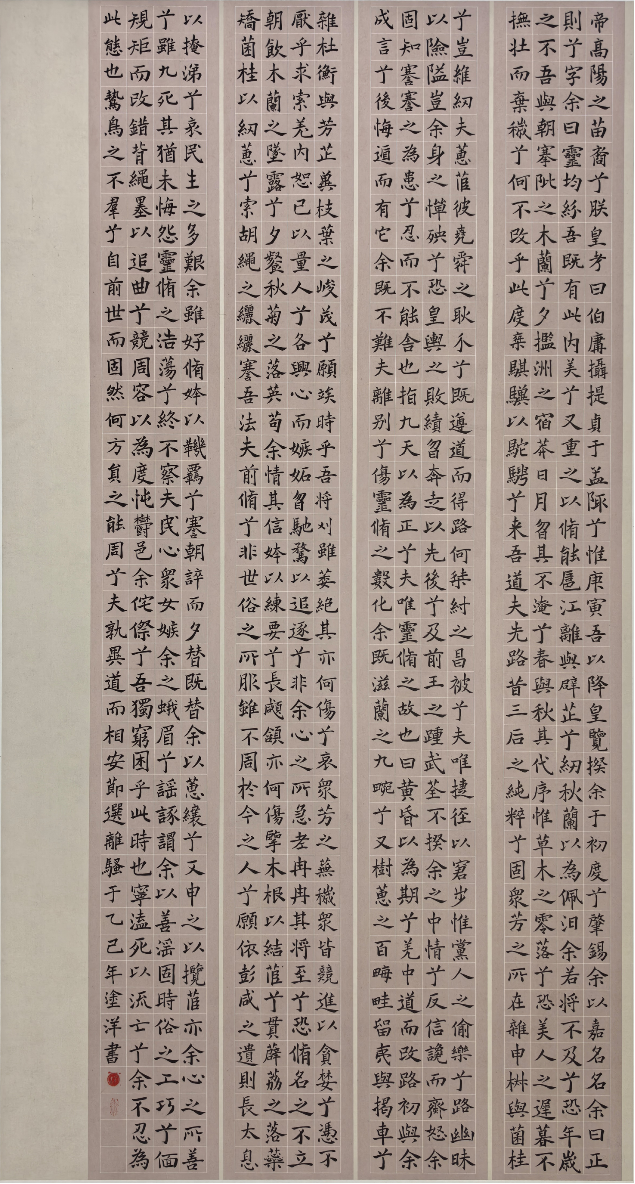 帝高陽之苗裔兮朕皇考曰伯庸攝提貞于孟陬兮惟庚寅吾以降皇覽揆余于初度兮肇錫余以嘉名名余曰正
則兮字余曰靈均紛吾既有此內美兮又重之以脩能扈江離與辟芷兮紉秋蘭以為佩汩余若將不及兮恐年歲
之不吾與朝搴阰之木蘭兮夕攬洲之宿莽日月曶其不淹兮春與秋其代序惟草木之零落兮恐美人之遲暮不
撫壯而棄穢兮何不改乎此度乘騏驥以駝騁兮来吾道夫先路昔三后之純粹兮固衆芳之所在雜申椒與菌桂
兮豈維紉夫蕙茝彼堯舜之耿介兮既遵道而得路何桀紂之昌被兮夫唯捷徑以窘步惟黨人之偷樂兮路幽昧
以險隘豈余身之憚殃兮恐皇輿之敗績曶奔走以先後兮及前王之踵武荃不揆余之中情兮反信讒而齌怒余
固知謇謇之為患兮忍而不能舍也指九天以為正兮夫唯靈脩之故也曰黃昏以為期兮羌中道而改路初與余
成言兮後悔遁而有它余既不難夫離別兮傷靈脩之數化余既滋蘭之九畹兮又樹蕙之百畮畦留夷與揭車兮
雜杜衡與芳芷冀枝葉之峻茂兮願竢時乎吾將刈雖萎絕其亦何傷兮哀衆芳之蕪穢衆皆競進以貪婪兮憑不
厭乎求索羌內恕己以量人兮各興心而嫉妬曶馳騖以追逐兮非余心之所急老冉冉其將至兮恐脩名之不立
朝飲木蘭之墜露兮夕餐秋菊之落英苟余情其信姱以練要兮長顑頷亦何傷擥木根以結茝兮貫薜荔之落蘂
矯菌桂以紉蕙兮索胡繩之纚纚謇吾法夫前脩兮非世俗之所服雖不周於今之人兮願依彭咸之遺則長太息
以掩涕兮哀民生之多艱余雖好脩姱以鞿羈兮謇朝誶而夕替既替余以蕙纕兮又申之以攬茝亦余心之所善
兮雖九死其猶未悔怨靈脩之浩蕩兮終不察夫民心衆女嫉余之蛾眉兮謠諑謂余以善淫固時俗之工巧兮偭
規矩而改錯背繩墨以追曲兮競周容以為度忳鬱邑余侘傺兮吾獨窮困乎此時也寧溘死以流亡兮余不忍為
此態也鷙鳥之不羣兮自前世而固然何方員之能周兮夫孰異道而相安節選離騷于乙巳年塗洋書